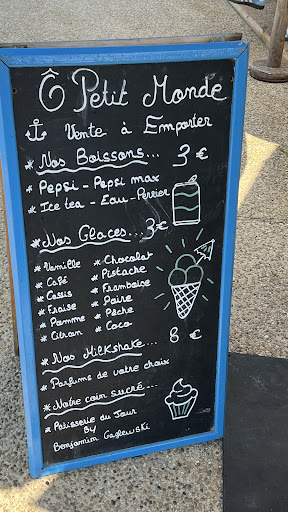 Ô Petit Monde
Vente à Emporter
* Nos Boissons... 3 €
* Pepsi - Pepsi max
* Ice tea - Eau - Perrier
* Nos Glaces... 3 €
* Vanille * Chocolat
* Café * Pistache
* Cassis * Framboise
* Fraise * Poire
* Pomme * Pêche
* Citran * Coco
* Nos Milkshake... 8 €
* Parfums de votre choix
* Notre coin sucré...
* Patisserie du Jour
By
Benjamin